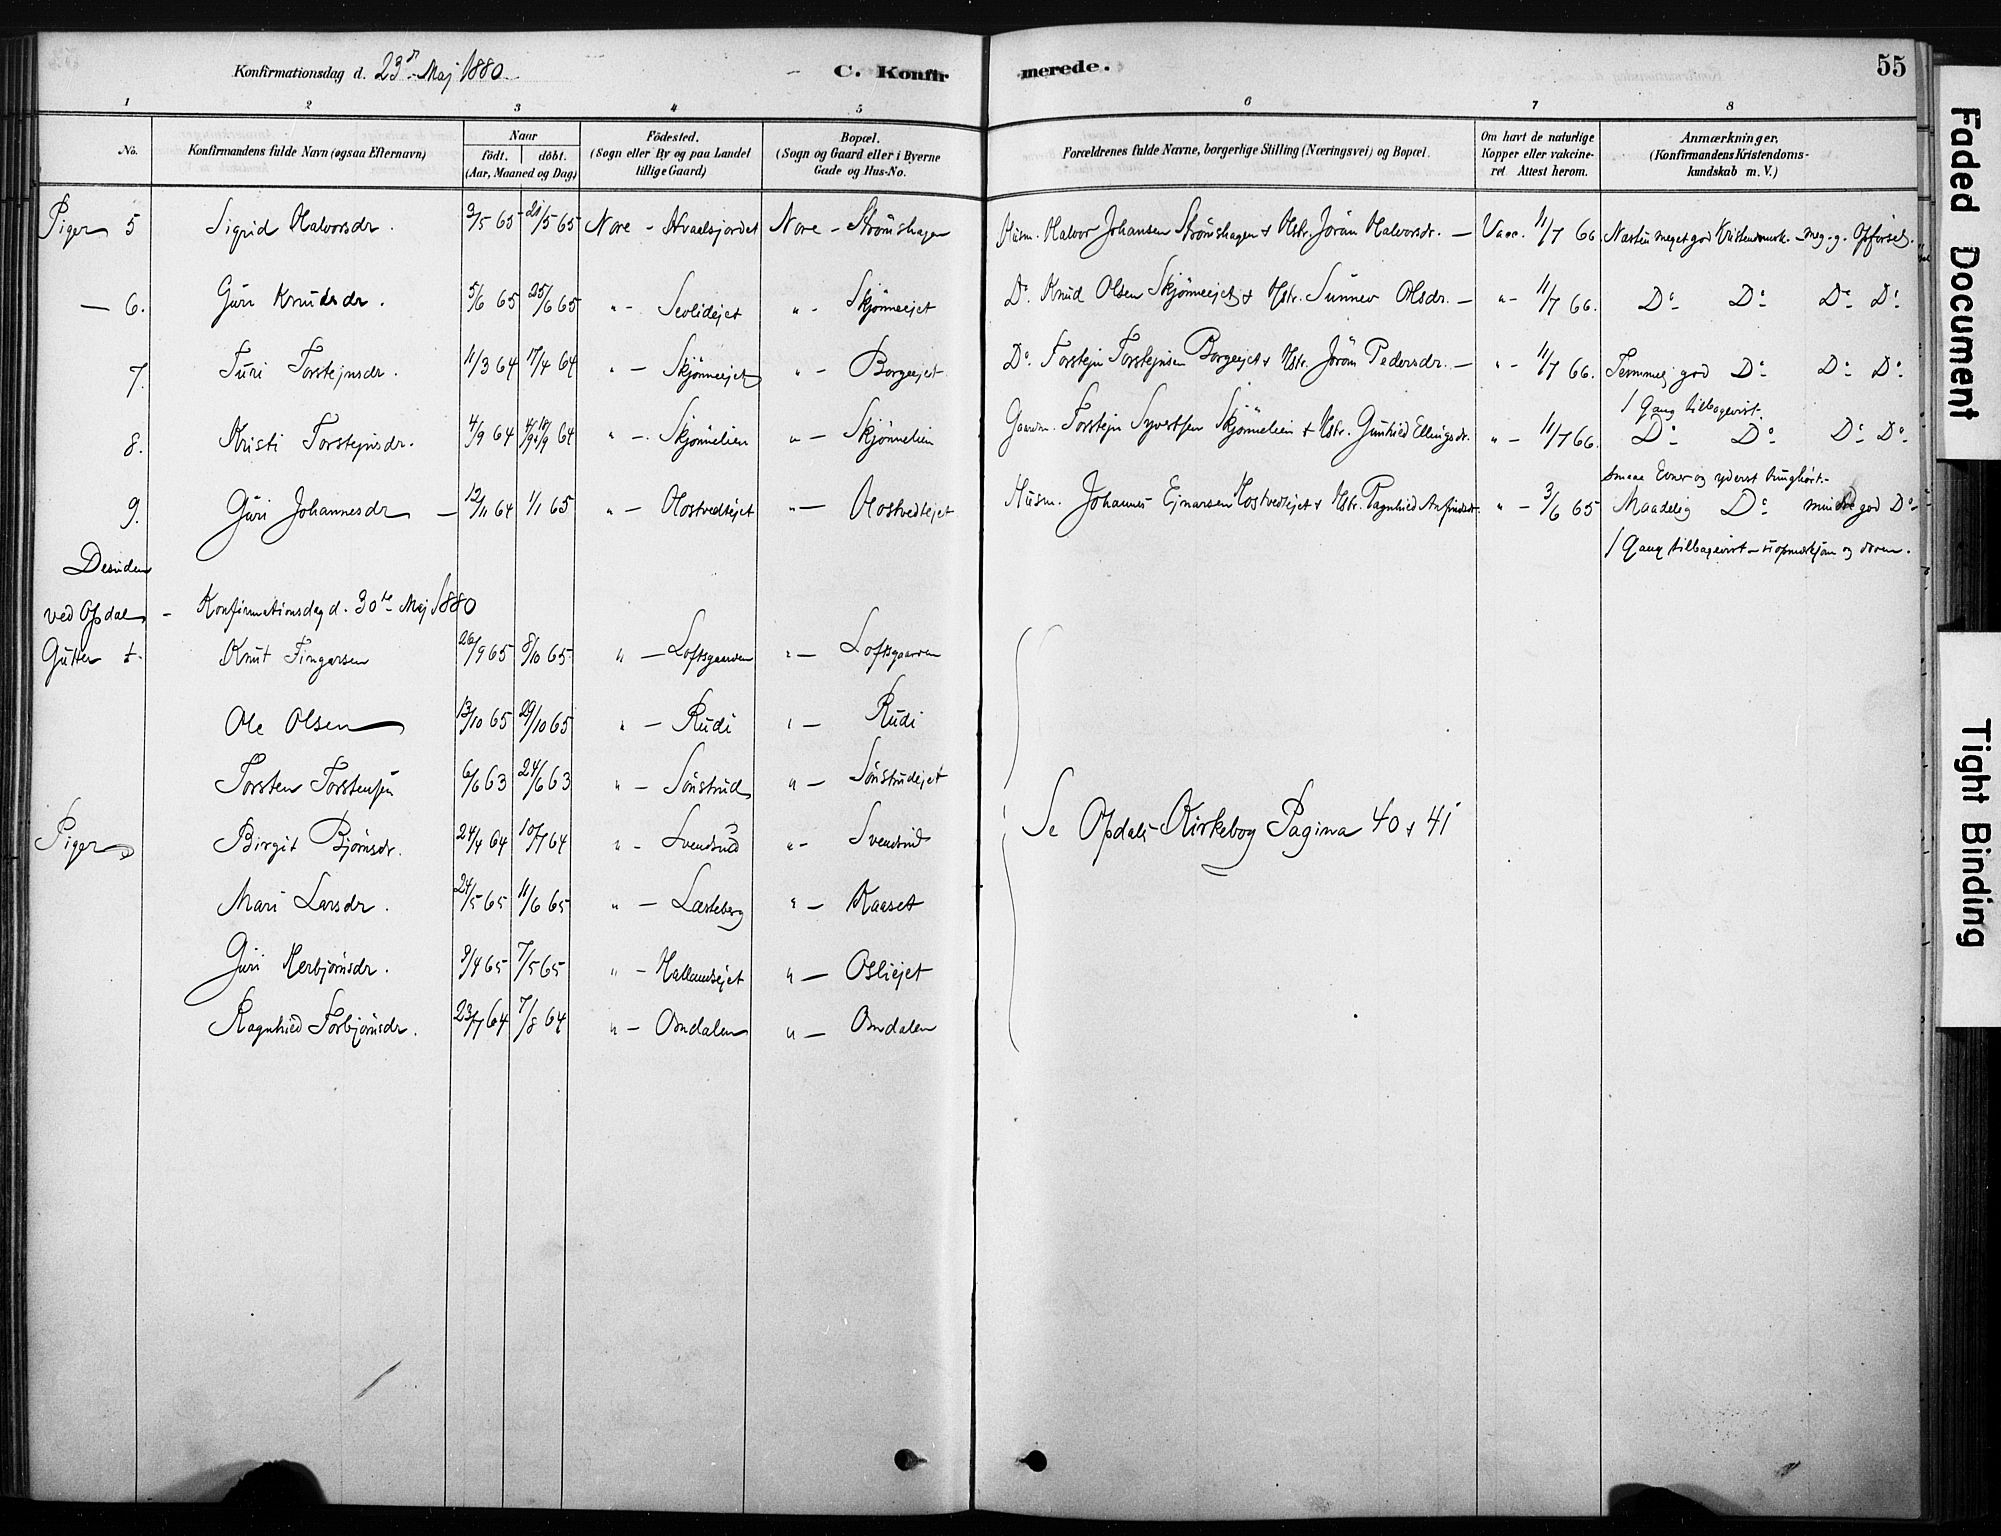 Konfirmationsdag d. 23de Maj 1880.
C. Konfirmerede.
55
1 2 3 4 5 6 7 8
No.
Konfirmandens fulde Navn (ogsaa Efternavn)
Naar
födt. döbt.
(Aar, Maaned og Dag)
Födested.
(Sogn eller By og paa Landet
tillige Gaard)
Bopæl.
(Sogn og Gaard eller i Byerne
Gade og Hus-No.
Forældrenes fulde Navne, borgerlige Stilling (Næringsvei) og Bopæl.
Om havt de naturlige
Kopper eller vakcine-
ret Attest herom.
Anmærkninger.
(Konfirmandens Kristendoms-
kundskab m. V.)
Piger 5 Sigrid Halvorsdr. 3/5 65 21/5 65 Nore - Hvaalsjordet Nore - Strömshagen Husm. Halvor Johansen Strömshagen & Hstr. Jöran Halvorsdr. — Vacc. 11/7 66 Næsten meget god Kristendomsk. - meg. g. Opförsel.
— 6. Guri Knudsdr. 5/6 65 25/6 65 " - Seolidejet " - Skjönneejet Do. Knud Olsen Skjönneejet & Hstr. Sunnev Olsdr. — " - 11/7 66. Do Do Do Do
7. Turi Torstejnsdr. 11/3 64 17/4 64 " - Skjönneejet " - Borgeejet Do. Torstejn Torstejnsen Borgeejet & Hstr. Jöran Pedersdr. — " - 11/7 66. Temmelig god Do Do Do
1 Gang tilbagevist.
8. Kristi Torstejnsdr. 4/9 64 64 " - Skjönnelien " - Skjönnelien Gaardm. Torstejn Syvertsen Skjönnelien & Hstr. Gunhild Ellingsdr. " - 11/7 66. Do Do Do Do
smaa Evner og yderst tunghört.
9. Guri Johannesdr — 12/11 64 1/1 65 " - Hostvedtejet " - Hostvedtejet Husm. Johannes Ejnarsen Hostvedtejet & Hstr. Ragnhild Anfindsdr. " - 3/6 65 Maadelig Do mindre god Do
1 Gang tilbagevist - uopmærksom og doven.
Desuden
ved Opdal - Konfirmationsdag d. 30te Maj 1880
Gutter Knut Fingarsen 26/9 65 8/10 65 " - Loftsgaarden " - Loftsgaarden
Ole Olsen 13/10 65 29/10 65 " - Rudi " - Rudi
Torsten Torstensen 6/6 63 24/6 63 " - Sönstrud " - Sönstrudejet
Se Opdals Kirkebog Pagina 40 & 41
Piger Birgit Björnsdr. 24/4 64 10/7 64 " - Svendsrud " - Svendsrud
Mari Larsdr. 24/5 65 11/6 65 " - Læsteberg " - Kaaset
Guri Herbjörnsdr. 9/4 65 7/5 65 " - Hallandsejet " - Osliejet
Ragnhild Torbjörnsdr. 23/7 64 7/8 64 " - Omdalen " - Omdalen
Faded Document
Tight Binding